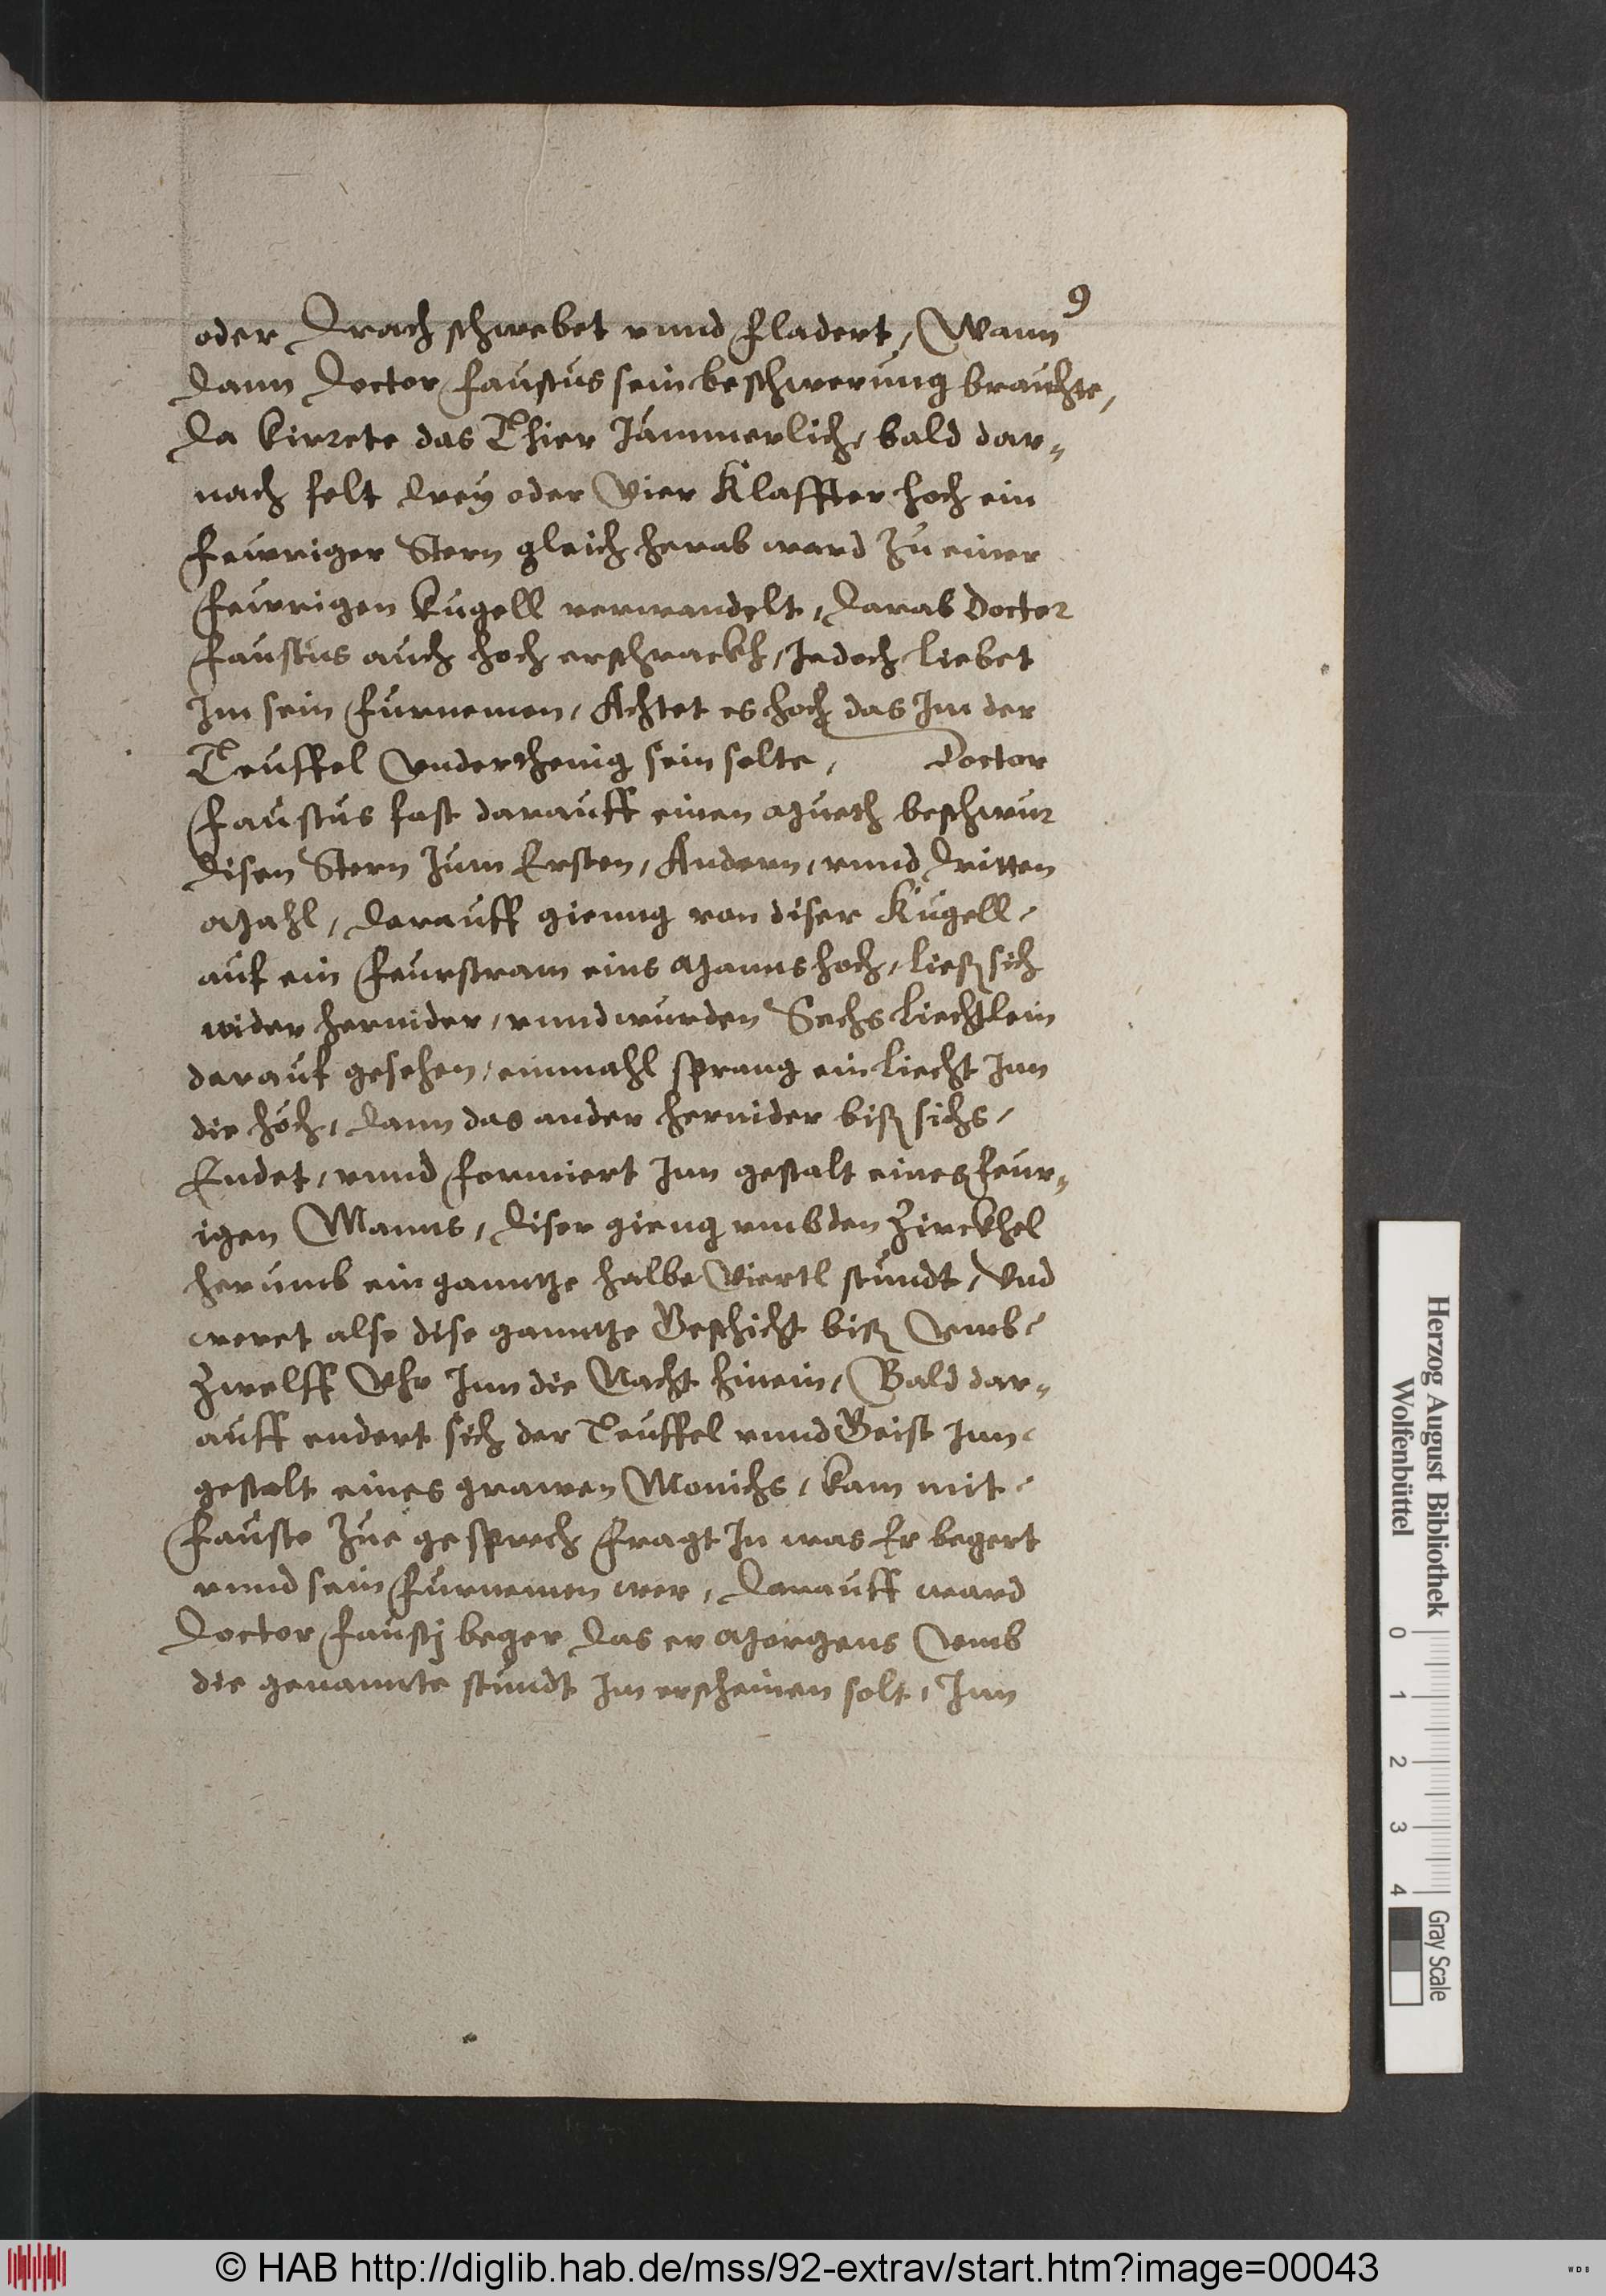 9
oder Drach schwebet vnnd fladert, Wann
dann Doctor Faustus sein beschwerung brauchte,
Da kirrete das Thier Jämmerlich, bald dar=
nach felt Drey oder Vier Klaffter hoch ein
fewriger Stern gleich herab ward Zu einer
fewrigen Kugell verwandelt, Darab Doctor
Faustus auch hoch erschrackh, Jedoch liebet
Jm sein Furnemen, Achtet es hoch das Jm der
Teuffel Vnderthenig sein solte, Doctor
Faustus fast darauff einen Mueth beschwur
Disen Stern Zum Ersten, Andern, vnnd Dritten
Mahl, Darauff gienng von diser Kugell
auf ein Feurstram eins Manns hoch, ließ sich
wider hernider, vnnd wurden Sechs Liechtlein
darauf gesehen, einmahl sprang ein Liecht Jnn
die höch, Dann das ander hernider biß sichs
Endet, vnnd formiert Jnn gestalt eines feur=
igen Manns, Diser gieng vmb den Zirckhel
herumb ein ganntze halbe Viertl stundt, Vnd
weret also dise ganntze Geschicht biß Vmb
Zwelff Vhr Jnn die Nacht hinein, Bald dar=
auff endert sich der Teuffel vnnd Geist Jnn
gestalt eines grawen Monichs, kam mit
Fausto Zue gesprech fragt Jn was Er begert
vnnd sein Furnemen wer, Darauff ward
Doctor Faustj beger Das er Morgens Vmb
die genannte stundt Jm erscheinen solt, Jnn
Herzog August Bibliothek
Wolfenbüttel
0 1 2 3 4
Gray Scale
© HAB http://diglib.hab.de/mss/92-extrav/start.htm?image=00043
WDB